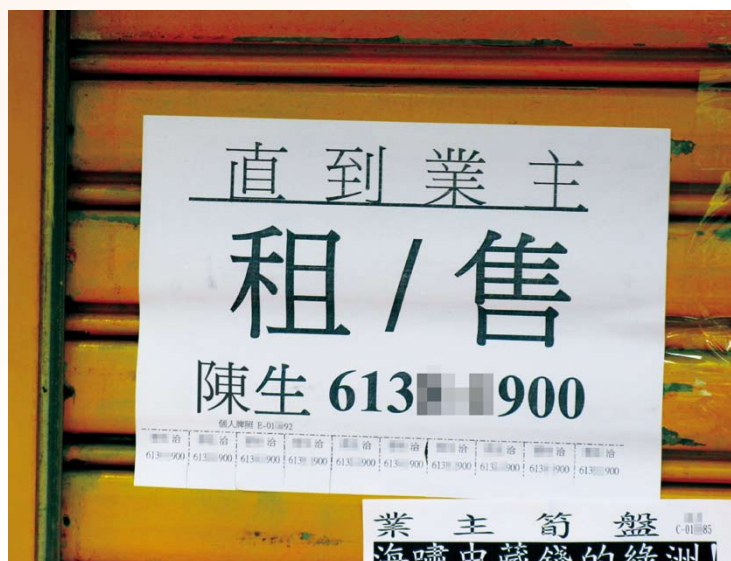 直到業主
租/售
陳生 613 900
個人牌照 E-01 92
洽 洽 洽 洽 洽 洽 洽 洽 洽 洽
613 900 613 900 613 900 613 900 613 900 613 900 613 900 613 900 613 900 613 900
業主筍盤
C-01 85
海嘯中藏錢的綠洲!